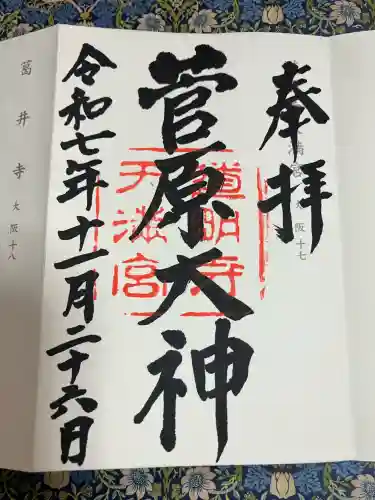 奉拝
満宮
阪十七
菅原大神
道明寺
天満宮
令和七年十一月二十六日
葛井寺 大阪十八